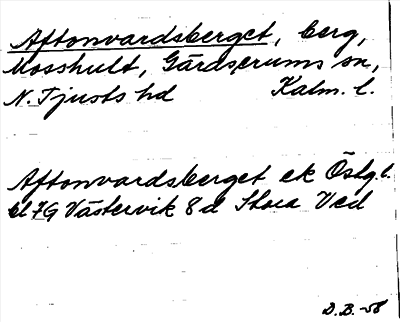 Aftonvardsberget, berg,
Mosshult, Gärdserums sn,
N. Tjusts hd Kalm. l.
Aftonvardsberget ek Östg. l.
bl 7G Västervik 8d Stora Ved
D.B. -58